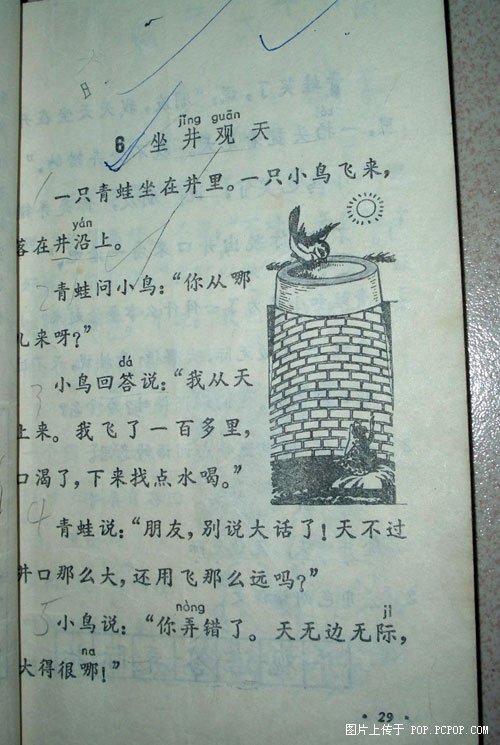 jǐng guān
6 坐井观天
一只青蛙坐在井里。一只小鸟飞来，
yán
落在井沿上。
青蛙问小鸟：“你从哪
儿来呀？”
dá
小鸟回答说：“我从天
上来。我飞了一百多里，
口渴了，下来找点水喝。”
青蛙说：“朋友，别说大话了！天不过
井口那么大，还用飞那么远吗？”
nòng jì
小鸟说：“你弄错了。天无边无际，
na
大得很哪！”
· 29 ·
图片上传于 POP.PCPOP.COM
1
2
3
4
5